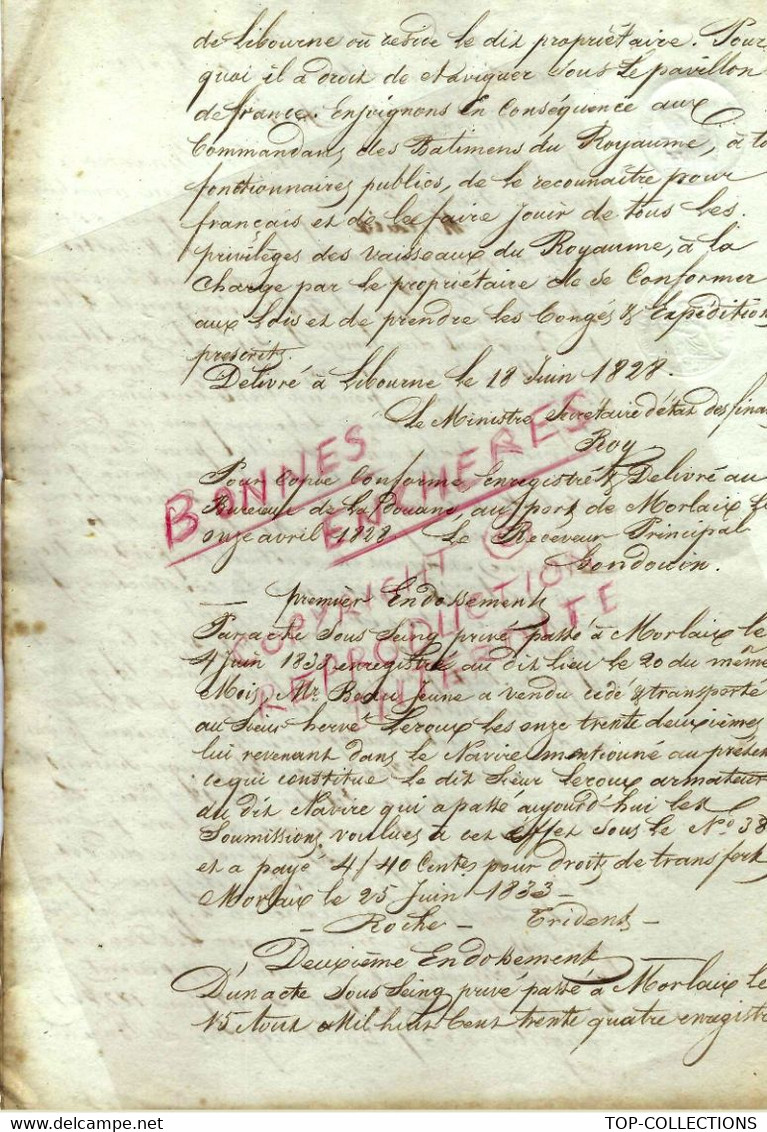 de Libourne où reside le dit propriétaire. Pour
quoi il a droit de Naviguer Sous Le pavillon
de france. Enjoignons En Conséquence aux
Commandans des Batimens du Royaume, à to
fonctionnaires publics, de le reconnaître pour
français et de le faire Jouir de tous les
privilèges des vaisseaux du Royaume, à la
Charge par le propriétaire de Se Conformer
aux Lois et de prendre les Congés & Expédition
prescrits.
Délivré à Libourne le 18 Juin 1828.
Le Ministre Secrétaire d'état des fina
Roy
Pour Copie Conforme enregistré & Delivré au
Bureau de la Douane, au port de Morlaix Le
onze avril 1828. Le Receveur Principal
Gondouin.
BONNES
ENCHERES
COPYRIGHT ©
REPRODUCTION
INTERDITE
— premier Endossement
Par acte Sous Seing privé passé à Morlaix le
4 Juin 1833 enregistré au dit lieu le 20 du même
Mois, Mr Beau Jeune a vendu cédé & transporté
au Sieur hervé Leroux les onze trente deuxièmes
lui revenant dans le Navire mentionné au présent
ce qui constitue le dit Sieur Leroux armateur
du dit Navire qui a passé aujourd'hui les
Soumissions voulues à cet éffet Sous le No 38
et a payé 4/40 Centes pour droits de transfert
Morlaix le 25 Juin 1833 —
— Roche — Trident —
Deuxième Endossement
D'un acte Sous Seing privé passé à Morlaix le
15 Aout Mil huit Cent trente quatre enregistr
TOP-COLLECTIONS